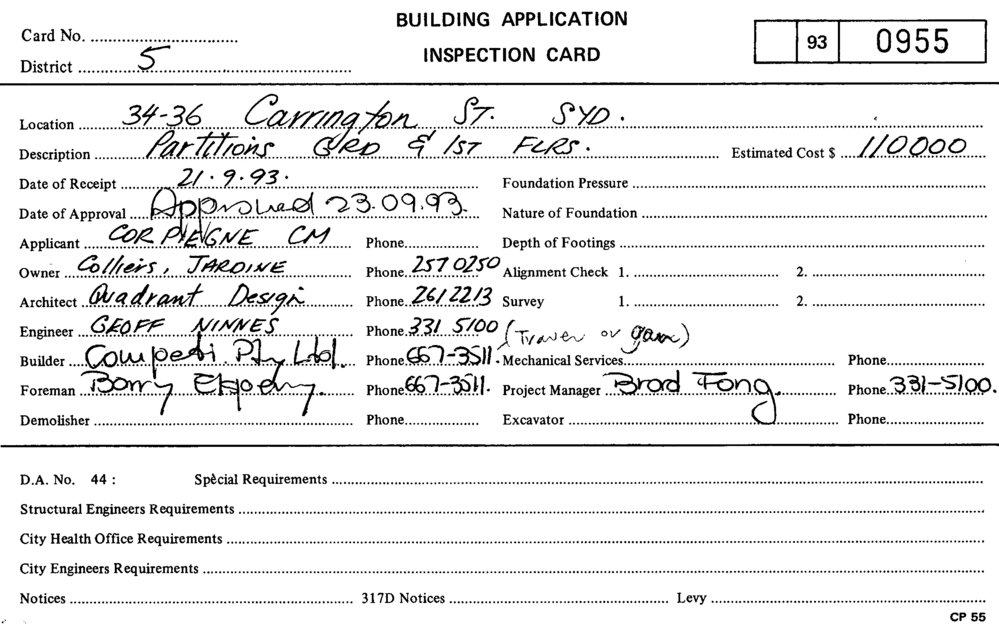 BUILDING APPLICATION
Card No.
INSPECTION CARD
93 0955
District 5
Location 34-36 Carrington ST. SYD.
Description Partitions GRD & 1ST FLRS. Estimated Cost $ 110000
Date of Receipt 21.9.93. Foundation Pressure
Date of Approval Approved 23.09.93. Nature of Foundation
Applicant CM Phone Depth of Footings
Owner Colliers, JARDINE Phone 2570250 Alignment Check 1. 2.
Architect Quadrant Design Phone 2612213 Survey 1. 2.
Engineer GEOFF NINNES Phone 331 5100 (Traver or
Builder Pty Ltd. Phone 667-3511. Mechanical Services Phone
Foreman Barry Phone 667-3511. Project Manager Brad Fong. Phone 331-5100.
Demolisher Phone Excavator Phone
D.A. No. 44 : Special Requirements
Structural Engineers Requirements
City Health Office Requirements
City Engineers Requirements
Notices 317D Notices Levy
CP 55